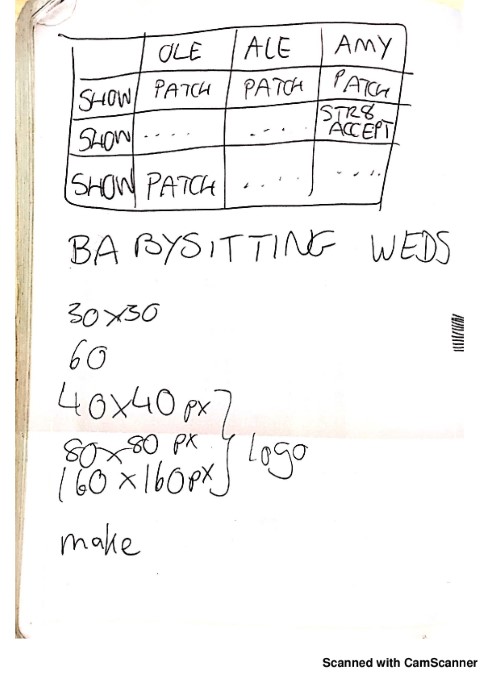 OLE ALE AMY
SHOW PATCH PATCH PATCH
SHOW .... .... STR8 ACCEPT
SHOW PATCH .... ....
BABYSITTING WEDS
30x30
60
40x40 px
80x80 px
160x160px
logo
make
Scanned with CamScanner